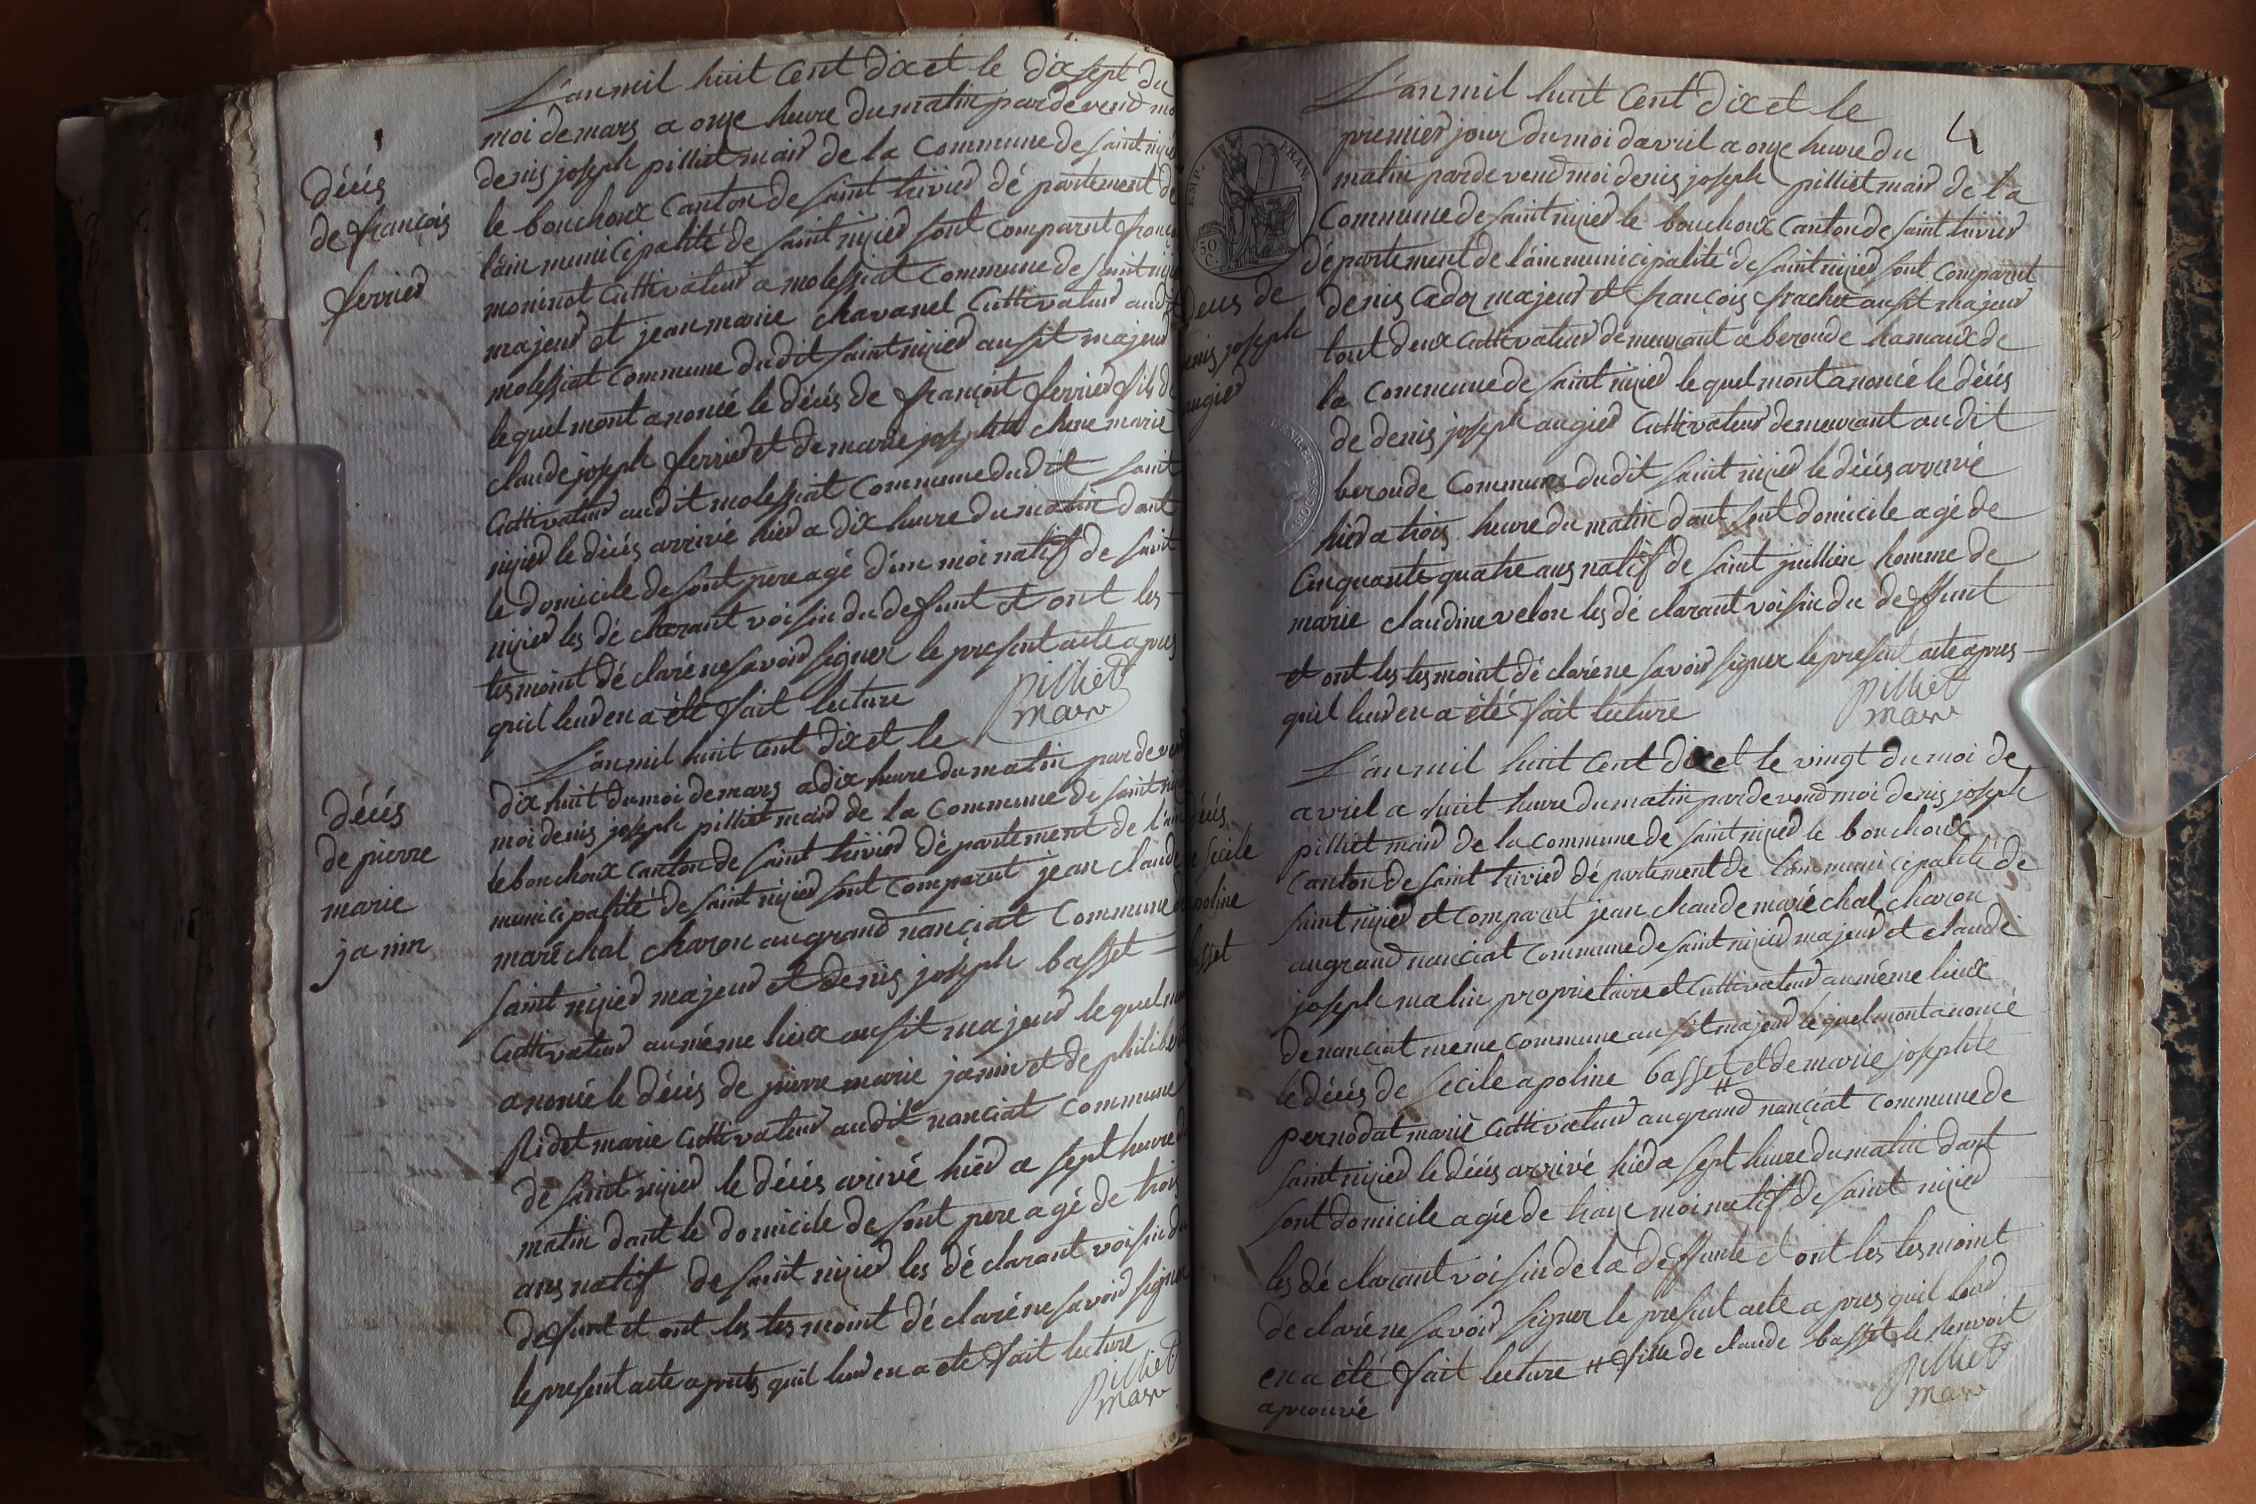 L'an mil huit Cent dix et le dix sept du
moi de mars a onze heure du matin par de vend
denis joseph pilliet maid de la Commune de saint
le bouchoux Canton de saint trivied dé partement de
l'ain municipalité de saint nizied sont Comparut
moninot Cultivateud a molessiat Commune de saint
majeud et jean marie chavanel Cultivateud audit
molessiat Commune dudit saint nizied aussit majeud
le quel mont anoncé le décés de françoit ferried fils de
claude joseph ferried et de marie josephte chene marie
Cultivateud audit molessiat Commune dudit saint
nizied le décés arrivé hied a dix heure du matin dant
le domicile de sont pere agé d'un moi natif de saint
nizied les dé clarant voisin du defunt et ont les
tesmoint dé claré ne savoid signer le present acte apres
quil leud en a été fait lecture
pilliet
maire
décés
de françois
ferried
L'an mil huit Cent dix et le
dix huit du moi de mars a dix heure du matin par de
moi denis joseph pilliet maid de la Commune de saint
le bouchoux Canton de saint trivied dé partement de l'ain
municipalité de saint nizied sont Comparut jean claude
maréchal charon au grand nanciat Commune
saint nizied majeud et denis joseph basset
Cultivateud au méme lieux aussit majeud le quel
anoncé le décés de pierre marie janin et de
Ridet marie Cultivateud audit nanciat Commune
de saint nizied le décés arivé hied a sept heure
matin dant le domicile de sont pere agé de trois
ans natif de saint nizied les dé clarant voisin du
defunt et ont les tesmoint dé claré ne savoid signer
le present acte apres quil leud en a été fait lecture
pilliet
maire
décés
de pierre
marie
janin
4
L'an mil huit Cent dix et le
premied jour du moi davril a onze heure du
matin par de vend moi denis joseph pilliet maid de la
Commune de saint nizied le bouchoux Canton de saint trivied
département de l'ain municipalité de saint nizied sont Comparut
denis Cadoz majeud et françois frachet aussit majeud
tout deux Cultivateud demeurant a beroude hamaux de
la Commune de saint nizied le quel mont anoncé le décés
de denis joseph augied Cultivateud demeurant audit
beroude Commune dudit saint nizied le décés arrivé
hied a trois heure du matin dant sont domicile agé de
Cinquante quatre ans natif de saint jullien homme de
marie claudine velon les dé clarant voisin du deffunt
et ont les tesmoint dé claré ne savoid signer le present acte apres
quil leud en a été fait lecture
pilliet
maire
EMP. FRAN.
50
de
joseph
augied
L'an mil huit Cent dix et le vingt du moi de
avril a huit heure du matin par de vend moi denis joseph
pilliet maid de la commune de saint nizied le bouchoux
Canton de saint trivied dé partement de l'ain municipalité de
saint nizied et Comparut jean claude maréchal charon
au grand nanciat Commune de saint nizied majeud et claude
joseph matin proprietaire et Cultivateud au méme lieux
de nanciat meme commune aussit majeud le quel mont anoncé
le décés de Secile apoline basset # et de marie josephte
pernodat marié Cultivateud au grand nanciat Commune de
saint nizied le décés arrivé hied a sept heure du matin dant
sont domicile agée de moi natif de saint nizied
les dé clarant voisin de la deffunte et ont les tesmoint
dé claré ne savoid signer le present acte apres quil leud
en a été fait lecture # fille de claude basset le Renvoit
aprouvé
pilliet
maire
Secile
apoline
basset